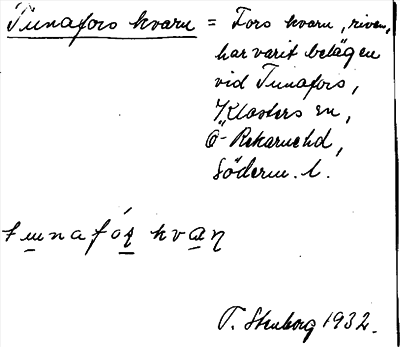 Tunafors kvarn = Fors kvarn, riven,
har varit belägen
vid Tunafors,
Klosters sn,
Ö-Rekarnehd,
Söderm. l.
tunafórs kvan
T. Stenborg 1932.